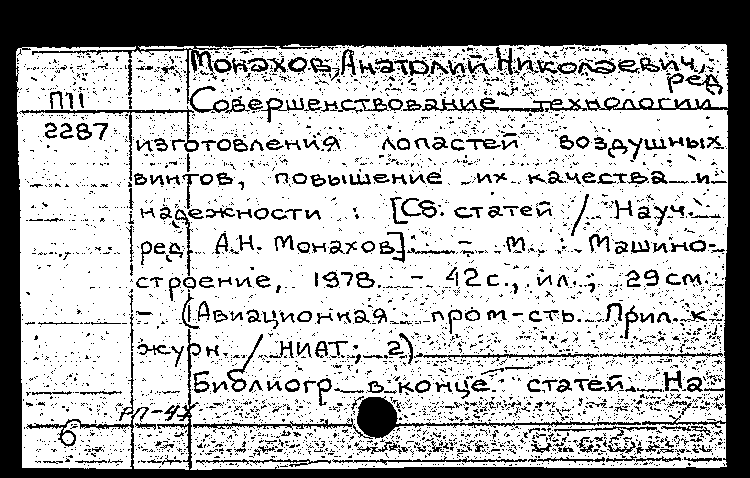 Монахов, Анатолий Николаевич, ред
П11
2287
Совершенствование технологии
изготовления лопастей воздушных
винтов, повышение их качества и
надежности : [Сб. статей / Науч.
ред. А.Н. Монахов]. – М. : Машино-
строение, 1978. – 42 с., ил.; 29 см.
– (Авиационная пром-сть. Прил. к
журн. / НИАТ; 2).
Библиогр. в конце статей. На
РП-47
6